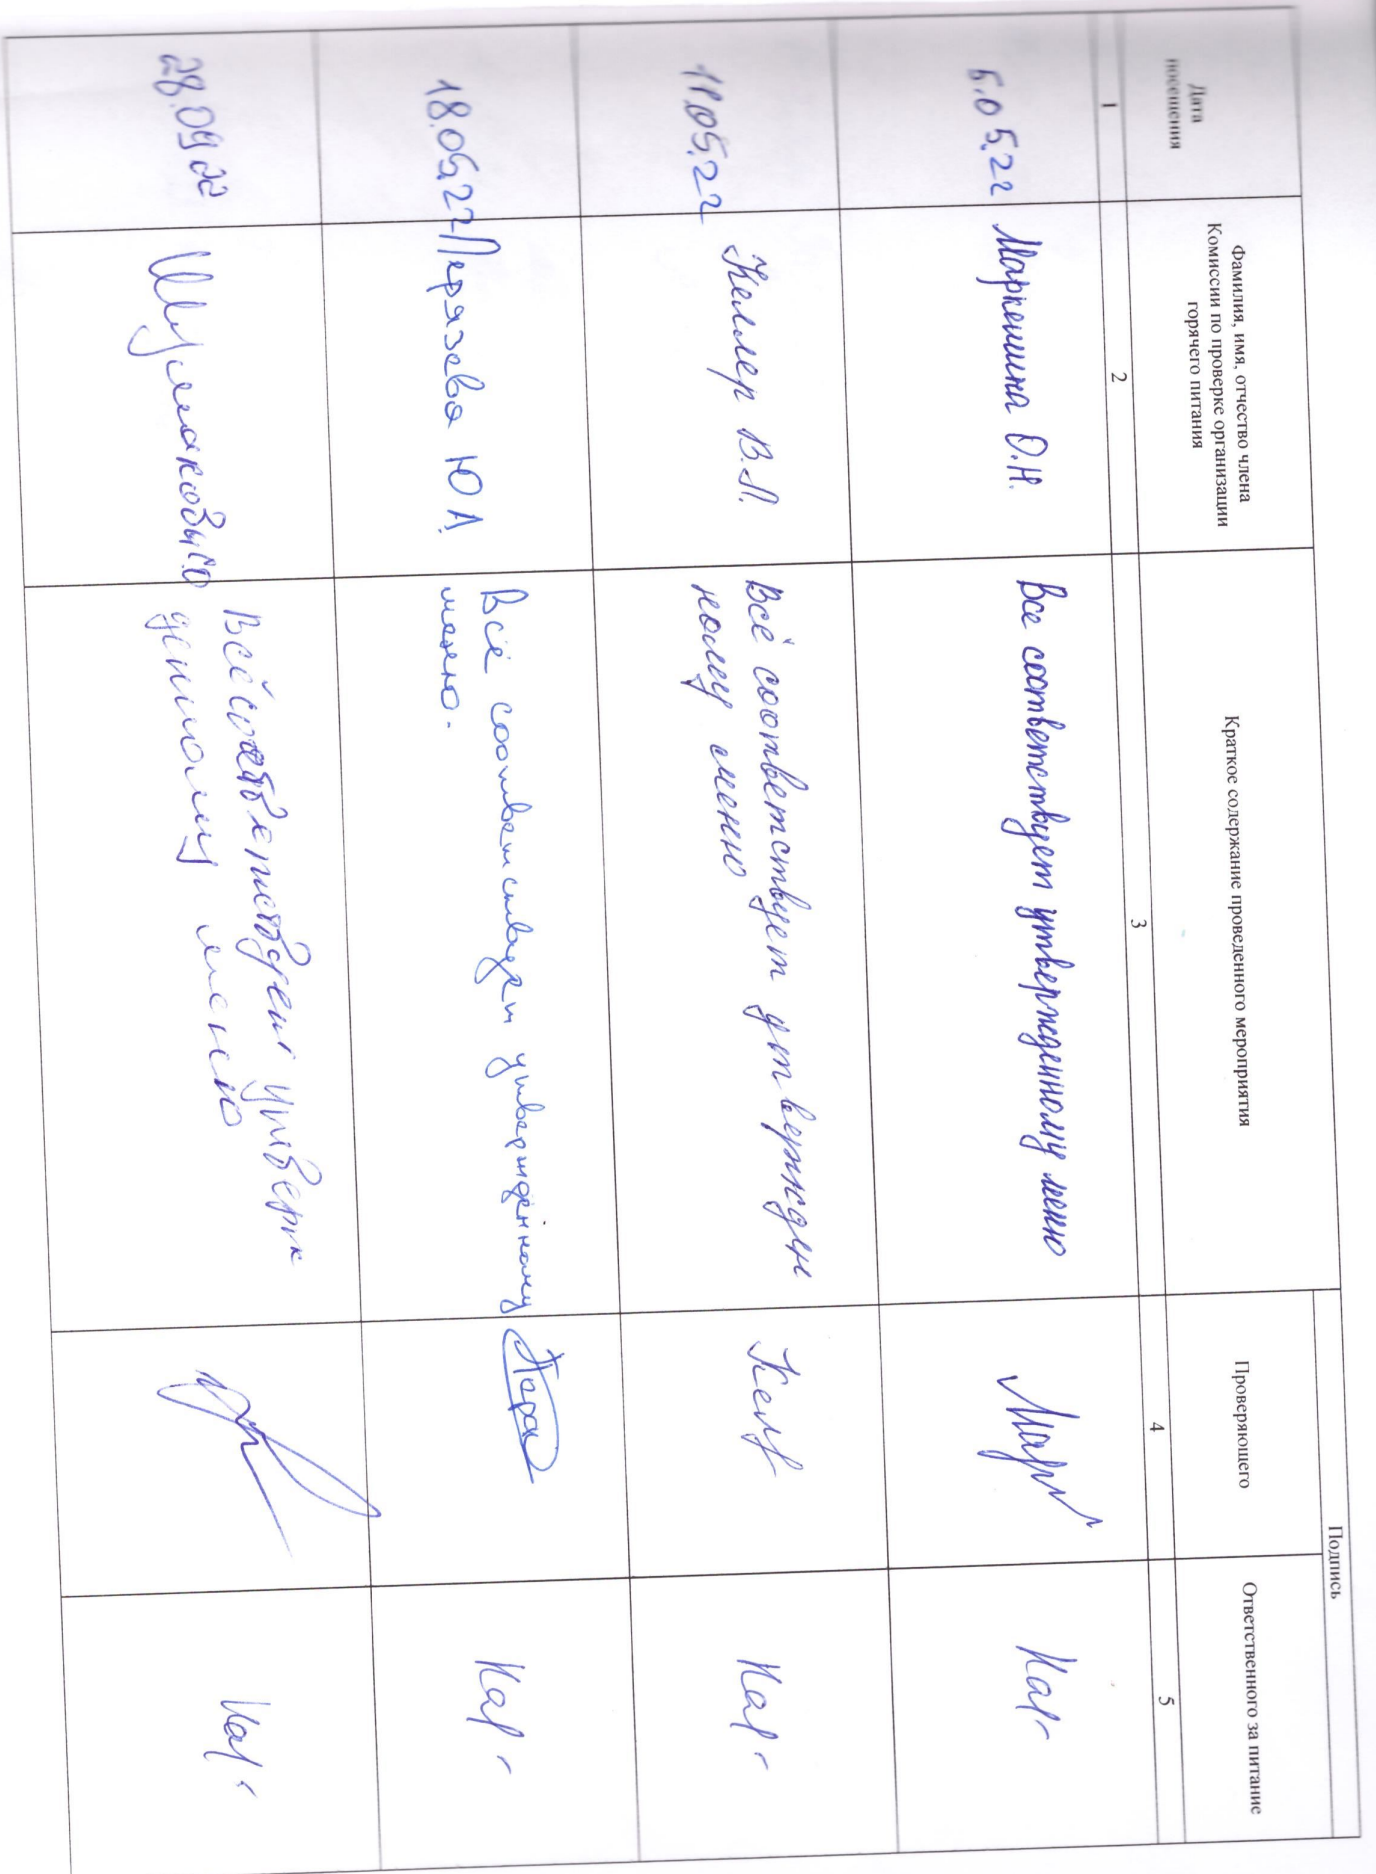 Подпись
Дата
посещения
Фамилия, имя, отчество члена
Комиссии по проверке организации
горячего питания
Краткое содержание проведенного мероприятия
Проверяющего
Ответственного за питание
1
2
3
4
5
5.05.22
Маркешина О.Н.
Все соответствует утвержденному меню
Кар
11.05.22
Келлер В.Л.
Всё соответствует утвержден
ному меню
Кар
18.05.22
Перязева Ю А.
Всё соответствует утверждённому
меню.
Кар
28.09 22
Всё соответствует утверж
денному меню
Кар